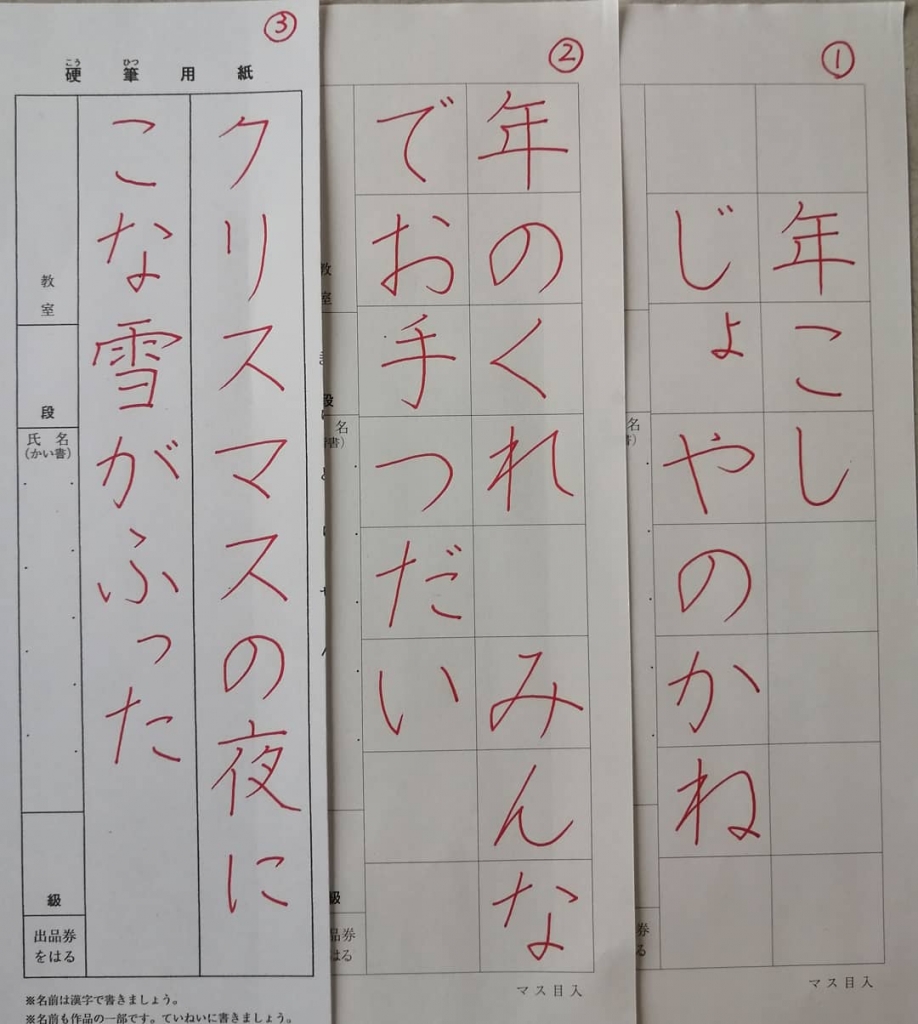 ①
年こし
じょやのかね
マス目入
②
年のくれ みんな
でお手つだい
マス目入
③
硬筆用紙
こう ひつ
クリスマスの夜に
こな雪がふった
教室
段
氏名
(かい書)
級
出品券
をはる
※名前は漢字で書きましょう。
※名前も作品の一部です。ていねいに書きましょう。